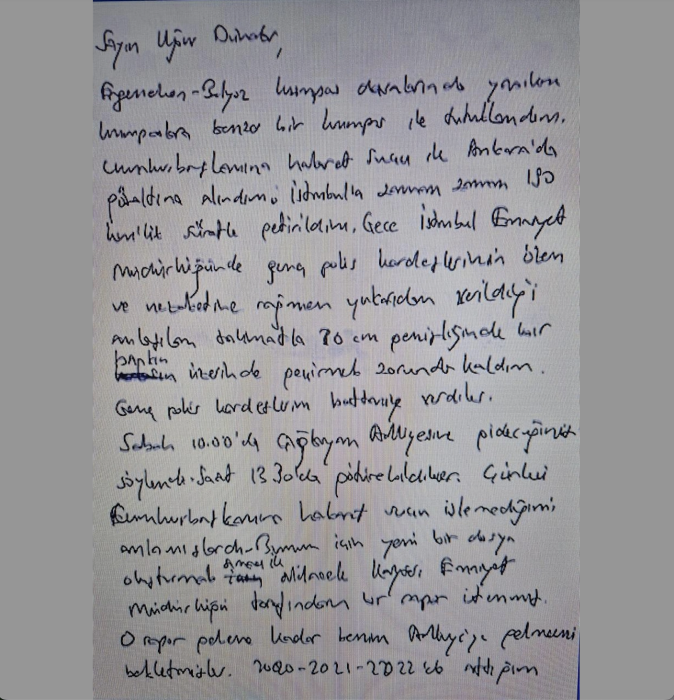 Sayın Uğur Dündar,
Ergenekon-Balyoz kumpas davalarında yapılan
kumpaslara benzer bir kumpas ile tutuklandım.
Cumhurbaşkanına hakaret suçu ile Ankara'da
gözaltına alındım. İstanbul'a zaman zaman 190
km'lik süratle getirildim. Gece İstanbul Emniyet
Müdürlüğünde genç polis kardeşlerimin özen
ve nezaketine rağmen yukarıdan verildiği
anlaşılan talimatla 70 cm genişliğinde bir
bankın üzerinde geçirmek zorunda kaldım.
Genç polis kardeşlerim battaniye verdiler.
Sabah 10.00'da Çağlayan Adliyesine gideceğimiz
söylendi. Saat 13.30'da götürebildiler. Çünkü
Cumhurbaşkanına hakaret suçu işlemediğimi
anlamışlardı. Bunun için yeni bir dosya
oluşturmak amacı ile Kayseri Emniyet
Müdürlüğü tarafından bir rapor istenmiş.
O rapor gelene kadar benim Adliyeye gelmemi
bekletmişler. 2020-2021-2022'de attığım